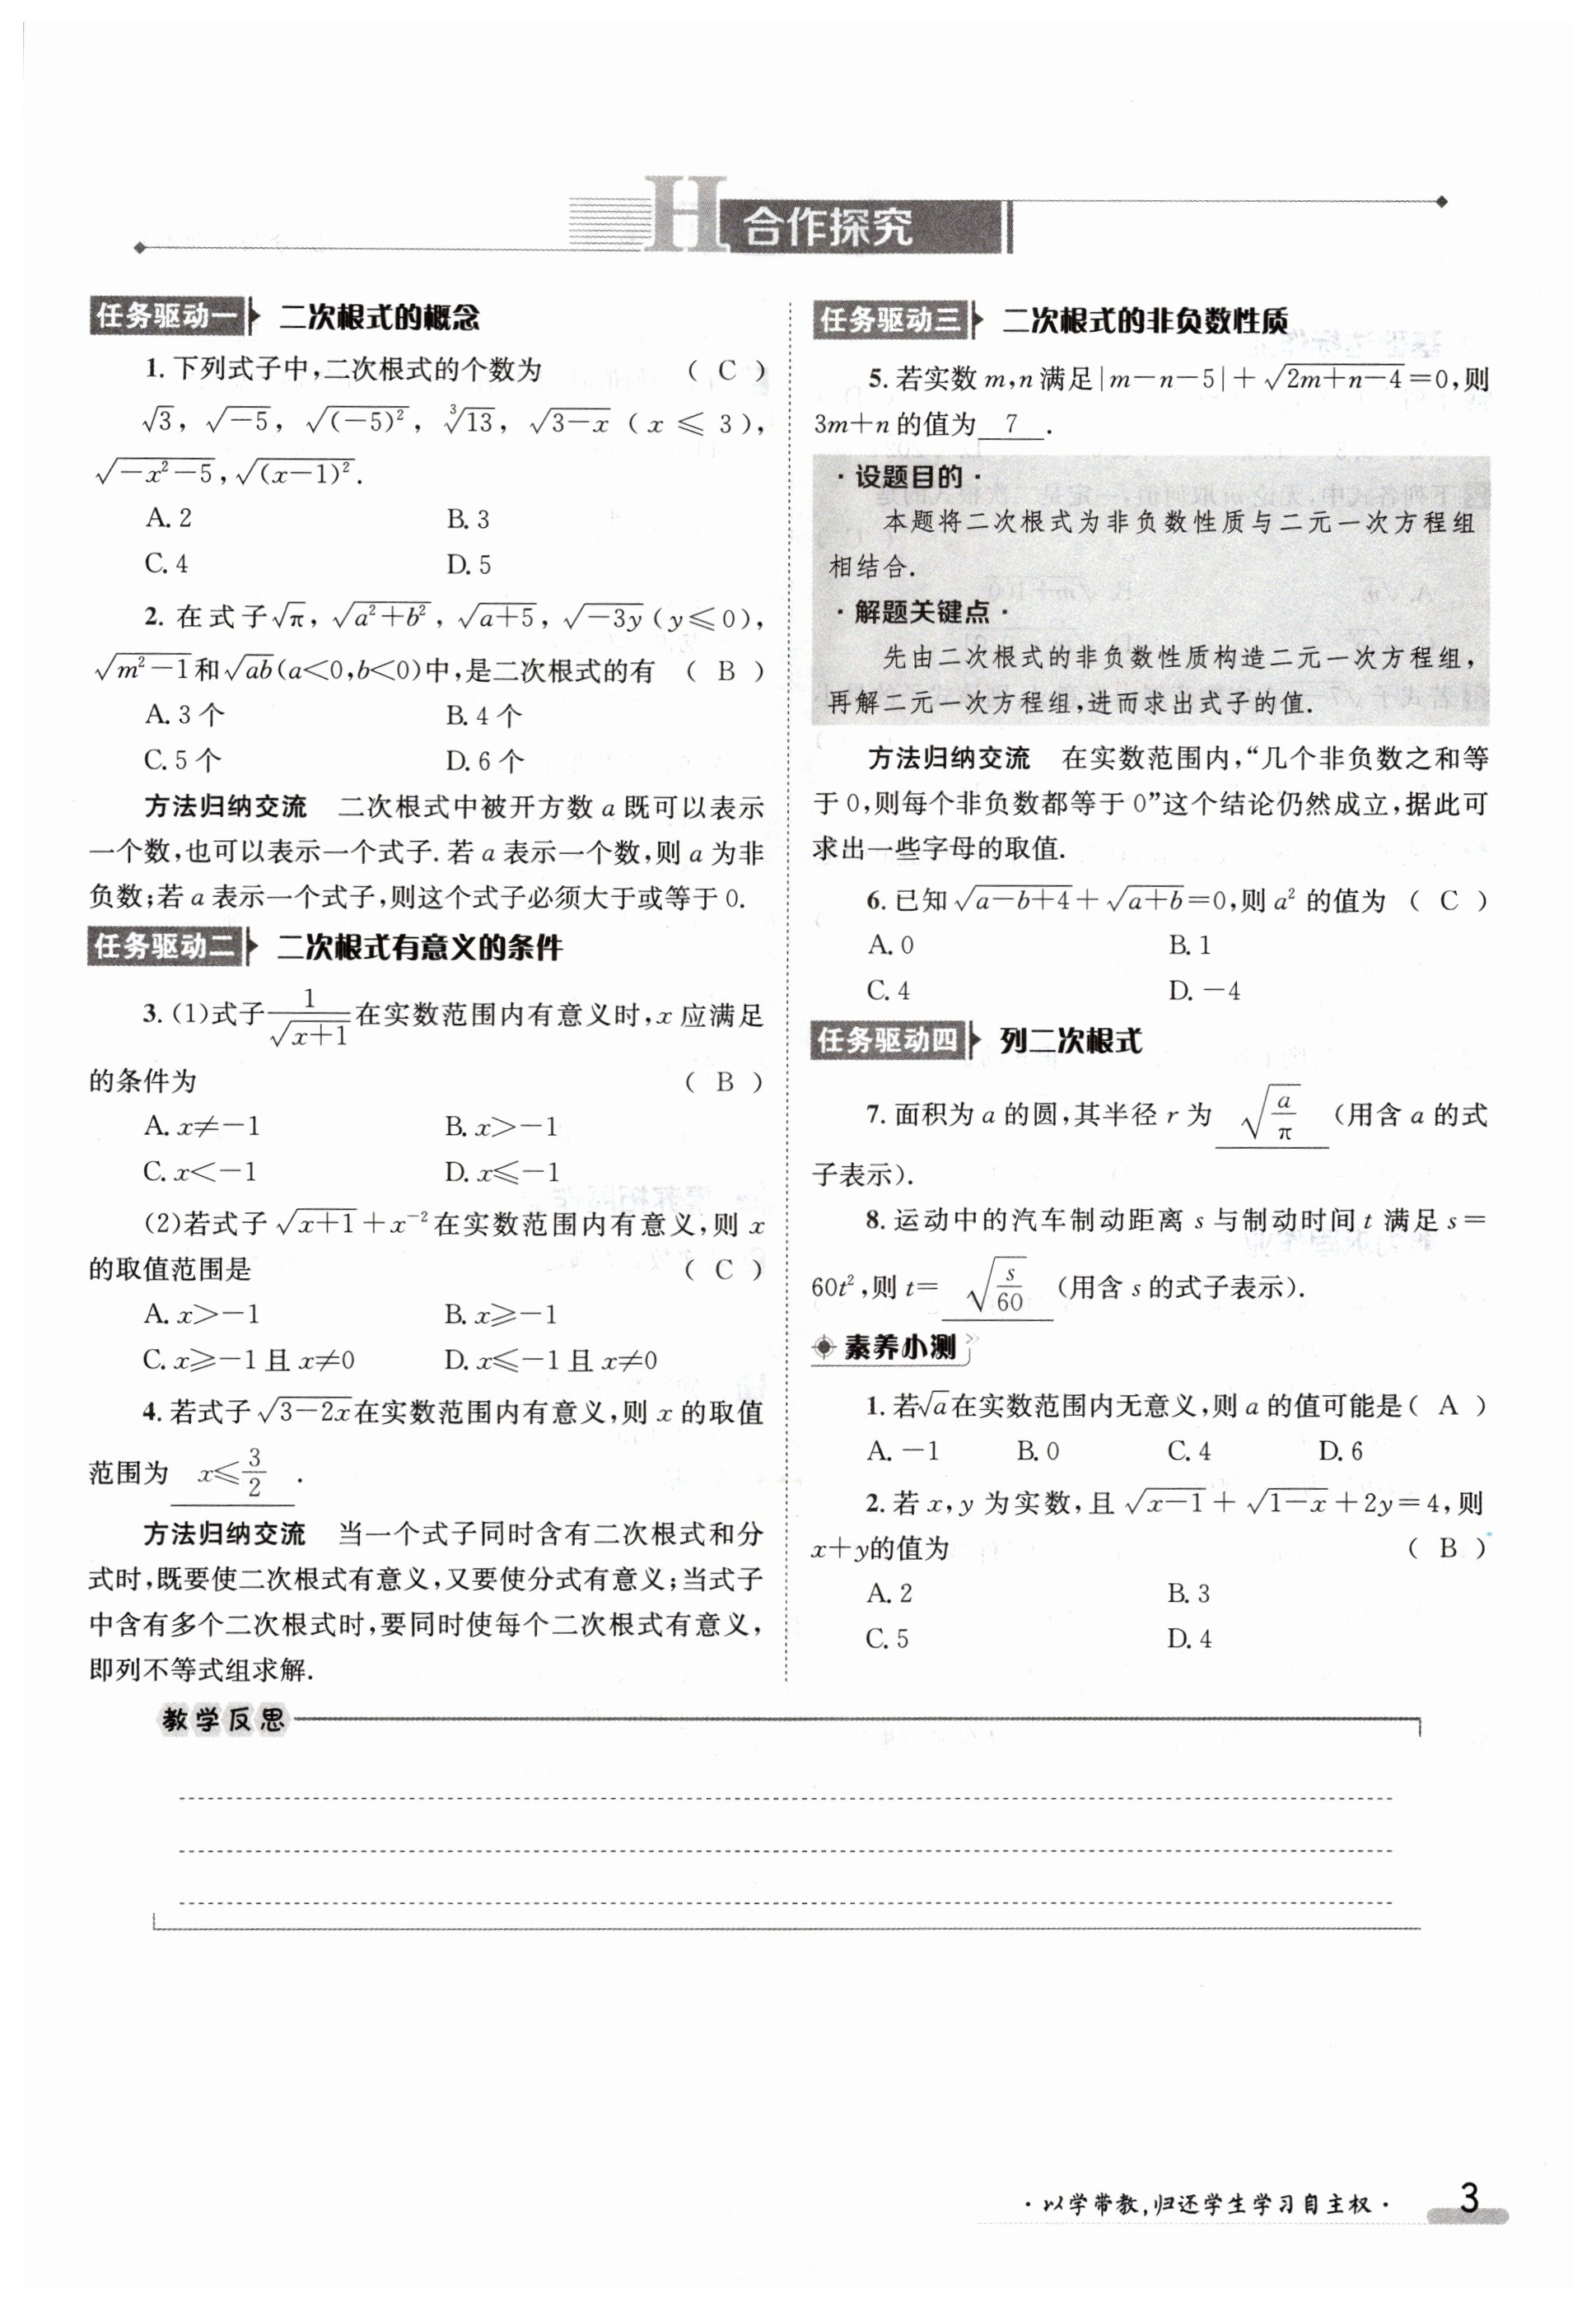 H 合作探究
任务驱动一 二次根式的概念
1. 下列式子中,二次根式的个数为 ( C )
√3, √(-5), √((-5)²), ∛13, √(3-x) ( x ⩽ 3 ),
√(-x²-5), √((x-1)²).
A. 2 B. 3
C. 4 D. 5
2. 在式子√π, √(a²+b²), √(a+5), √(-3y) (y⩽0),
√(m²-1)和√(ab)(a<0,b<0)中,是二次根式的有 ( B )
A. 3 个 B. 4 个
C. 5 个 D. 6 个
方法归纳交流 二次根式中被开方数 a 既可以表示
一个数,也可以表示一个式子. 若 a 表示一个数,则 a 为非
负数;若 a 表示一个式子,则这个式子必须大于或等于 0.
任务驱动二 二次根式有意义的条件
3. (1)式子 1/√(x+1) 在实数范围内有意义时,x 应满足
的条件为 ( B )
A. x≠-1 B. x>-1
C. x<-1 D. x⩽-1
(2)若式子 √(x+1)+x⁻² 在实数范围内有意义,则 x
的取值范围是 ( C )
A. x>-1 B. x⩾-1
C. x⩾-1 且 x≠0 D. x⩽-1 且 x≠0
4. 若式子 √(3-2x)在实数范围内有意义,则 x 的取值
范围为 x⩽3/2 .
方法归纳交流 当一个式子同时含有二次根式和分
式时,既要使二次根式有意义,又要使分式有意义;当式子
中含有多个二次根式时,要同时使每个二次根式有意义,
即列不等式组求解.
任务驱动三 二次根式的非负数性质
5. 若实数 m,n 满足|m-n-5|+√(2m+n-4)=0,则
3m+n 的值为 7 .
·设题目的·
本题将二次根式为非负数性质与二元一次方程组
相结合.
·解题关键点·
先由二次根式的非负数性质构造二元一次方程组,
再解二元一次方程组,进而求出式子的值.
方法归纳交流 在实数范围内,“几个非负数之和等
于 0,则每个非负数都等于 0”这个结论仍然成立,据此可
求出一些字母的取值.
6. 已知√(a-b+4)+√(a+b)=0,则 a² 的值为 ( C )
A. 0 B. 1
C. 4 D. -4
任务驱动四 列二次根式
7. 面积为 a 的圆,其半径 r 为 √(a/π) (用含 a 的式
子表示).
8. 运动中的汽车制动距离 s 与制动时间 t 满足 s=
60t²,则 t= √(s/60) (用含 s 的式子表示).
素养小测
1. 若√a在实数范围内无意义,则 a 的值可能是( A )
A. -1 B. 0 C. 4 D. 6
2. 若 x,y 为实数,且 √(x-1)+√(1-x)+2y=4,则
x+y的值为 ( B )
A. 2 B. 3
C. 5 D. 4
教学反思
·以学带教,归还学生学习自主权· 3